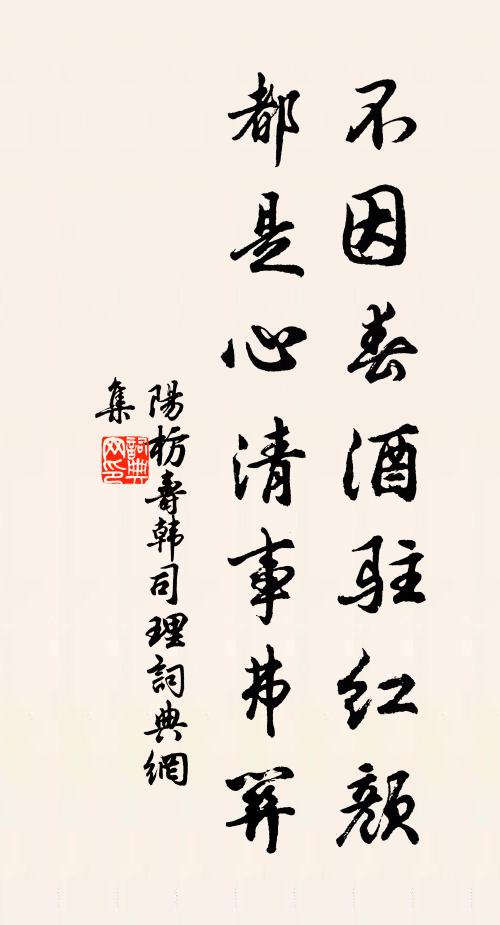 不因春酒駐紅顏
都是心清事弗關
陽枋壽韓司理詞典網
集
詞典網印